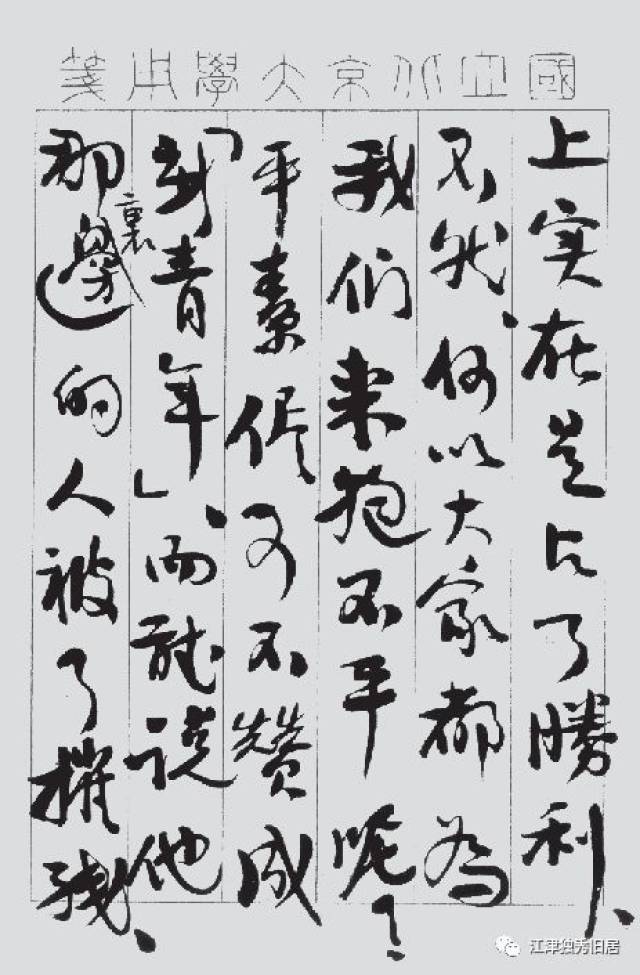 國立北京大學用箋
上实在是占了勝利、
不然、何以大家都為
我们来抱不平呢？
平素又不赞成
「新青年」、而能说他
那裏邊的人被了摧残、
江津独秀旧居